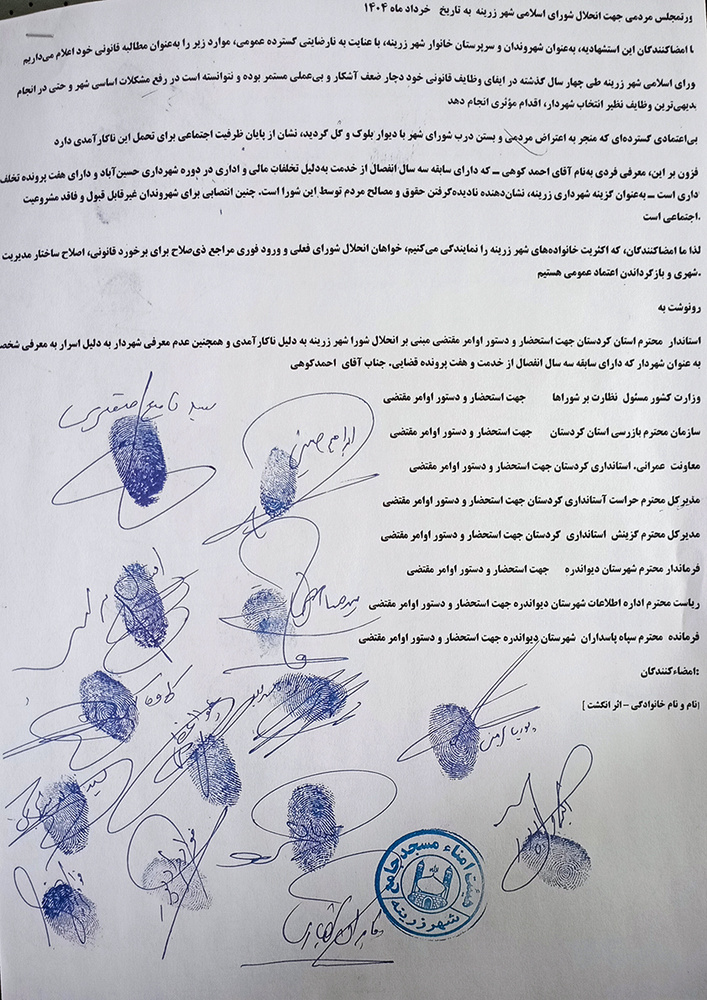 ورتمجلس مردمی جهت انحلال شورای اسلامی شهر زرینه به تاریخ خرداد ماه ۱۴۰۴
ا امضاکنندگان این استشهادیه، به‌عنوان شهروندان و سرپرستان خانوار شهر زرینه، با عنایت به نارضایتی گسترده عمومی، موارد زیر را به‌عنوان مطالبه قانونی خود اعلام می‌داریم
ورای اسلامی شهر زرینه طی چهار سال گذشته در ایفای وظایف قانونی خود دچار ضعف آشکار و بی‌عملی مستمر بوده و نتوانسته است در رفع مشکلات اساسی شهر و حتی در انجام
بدیهی‌ترین وظایف نظیر انتخاب شهردار، اقدام مؤثری انجام دهد
بی‌اعتمادی گسترده‌ای که منجر به اعتراض مردمی و بستن درب شورای شهر با دیوار بلوک و گل گردید، نشان از پایان ظرفیت اجتماعی برای تحمل این ناکارآمدی دارد
فزون بر این، معرفی فردی به‌نام آقای احمد کوهی ــ که دارای سابقه سه سال انفصال از خدمت به‌دلیل تخلفات مالی و اداری در دوره شهرداری حسین‌آباد و دارای هفت پرونده تخلف
داری است ــ به‌عنوان گزینه شهرداری زرینه، نشان‌دهنده نادیده‌گرفتن حقوق و مصالح مردم توسط این شورا است. چنین انتصابی برای شهروندان غیرقابل قبول و فاقد مشروعیت
.اجتماعی است
لذا ما امضاکنندگان، که اکثریت خانواده‌های شهر زرینه را نمایندگی می‌کنیم، خواهان انحلال شورای فعلی و ورود فوری مراجع ذی‌صلاح برای برخورد قانونی، اصلاح ساختار مدیریت
.شهری و بازگرداندن اعتماد عمومی هستیم
رونوشت به
استاندار محترم استان کردستان جهت استحضار و دستور اوامر مقتضی مبنی بر انحلال شورا شهر زرینه به دلیل ناکارآمدی و همچنین عدم معرفی شهردار به دلیل اسرار به معرفی شخص
به عنوان شهردار که دارای سابقه سه سال انفصال از خدمت و هفت پرونده قضایی. جناب آقای احمدکوهی
وزارت کشور مسئول نظارت بر شوراها جهت استحضار و دستور اوامر مقتضی
سازمان محترم بازرسی استان کردستان جهت استحضار و دستور اوامر مقتضی
معاونت عمرانی. استانداری کردستان جهت استحضار و دستور اوامر مقتضی
مدیر کل محترم حراست آستانداری کردستان جهت استحضار و دستور اوامر مقتضی
مدیرکل محترم گزینش استانداری کردستان جهت استحضار و دستور اوامر مقتضی
فرماندار محترم شهرستان دیواندره جهت استحضار و دستور اوامر مقتضی
ریاست محترم اداره اطلاعات شهرستان دیواندره جهت استحضار و دستور اوامر مقتضی
فرمانده محترم سپاه پاسداران شهرستان دیواندره جهت استحضار و دستور اوامر مقتضی
:امضاءکنندگان
[نام و نام خانوادگی – اثر انگشت]
هیئت امناء مسجد جامع
شهر زرینه